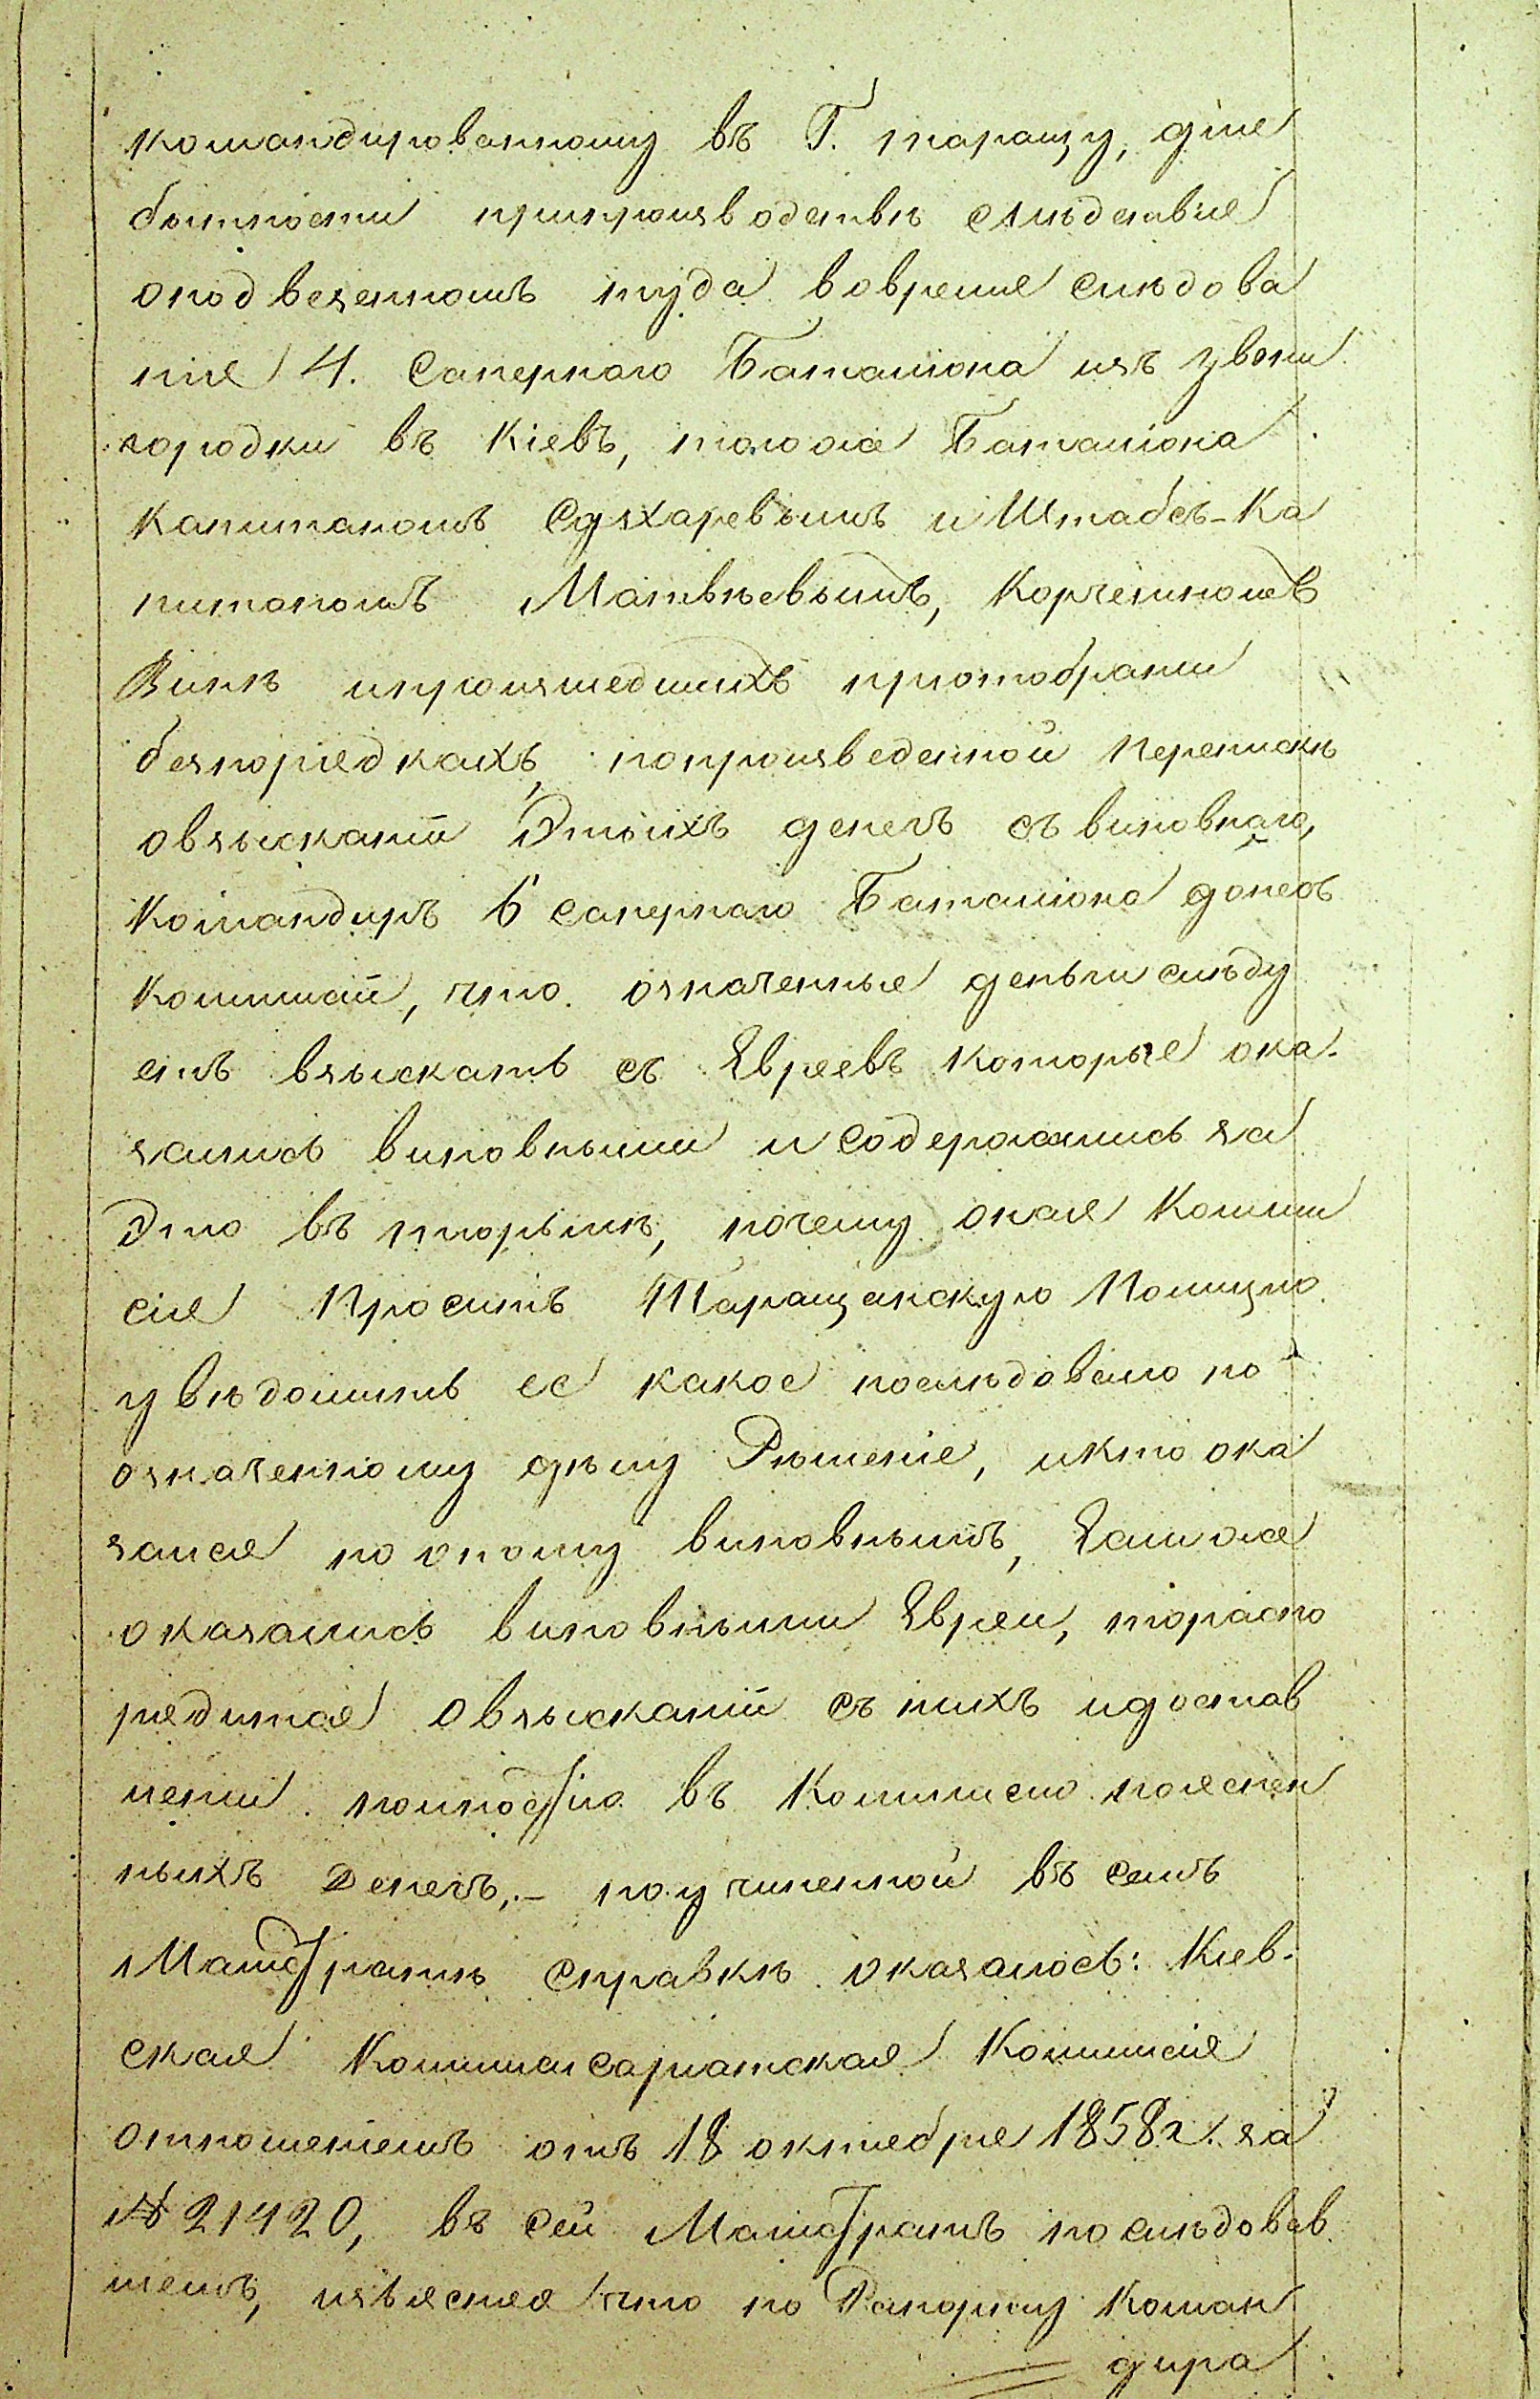 командированному въ Г. таращу, дле
бытности припроизводствѣ слѣдствие
оподвезенномъ туда вовреме слѣдова
ние 4. Саперного Баталиона изъ звени
городки въ Кіевъ, тогоже Баталиона
Капитаномъ Сухаревымъ и Штабсъ-Ка
питаномъ Матвѣевымъ, Корчемномъ
Винѣ ипроизшедшихъ приотобрани
безпоредкахъ, попроизведенной Перепискѣ
овзысканіи Этыихъ денегъ съ виновнаго,
Командиръ 6 саперного Баталиона донесъ
Коммисіи, что означенные деньги слѣду
етъ взыскать съ Евреевъ которые ока-
зались виновными и Содержались за
Это въ тюрьмѣ, почему оная Комми
сіе Проситъ Таращанскую Полицию
увѣдомить ее какое последовало по
означенному дѣлу Рѣшеніе, икто ока
зался по оному виновнымъ, Еслиже
оказались виновными Евреи, тораспо
редится Овзысканіи съ нихъ идостав
лении полностію въ Коммисию пояснен
ныхъ Денегъ,- поучиненной въ семъ
Магистратѣ Справкѣ оказалось: Киев-
ская Коммисариатская Коммисіе
отношениемъ отъ 18 октебре 1858 г. за
№ 21420, въ сей Магистратъ последовав
шемъ, изъясняе что по Рапорту Коман
дира